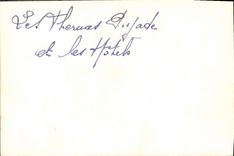 Les Thermes Pujade
et les Hôtels